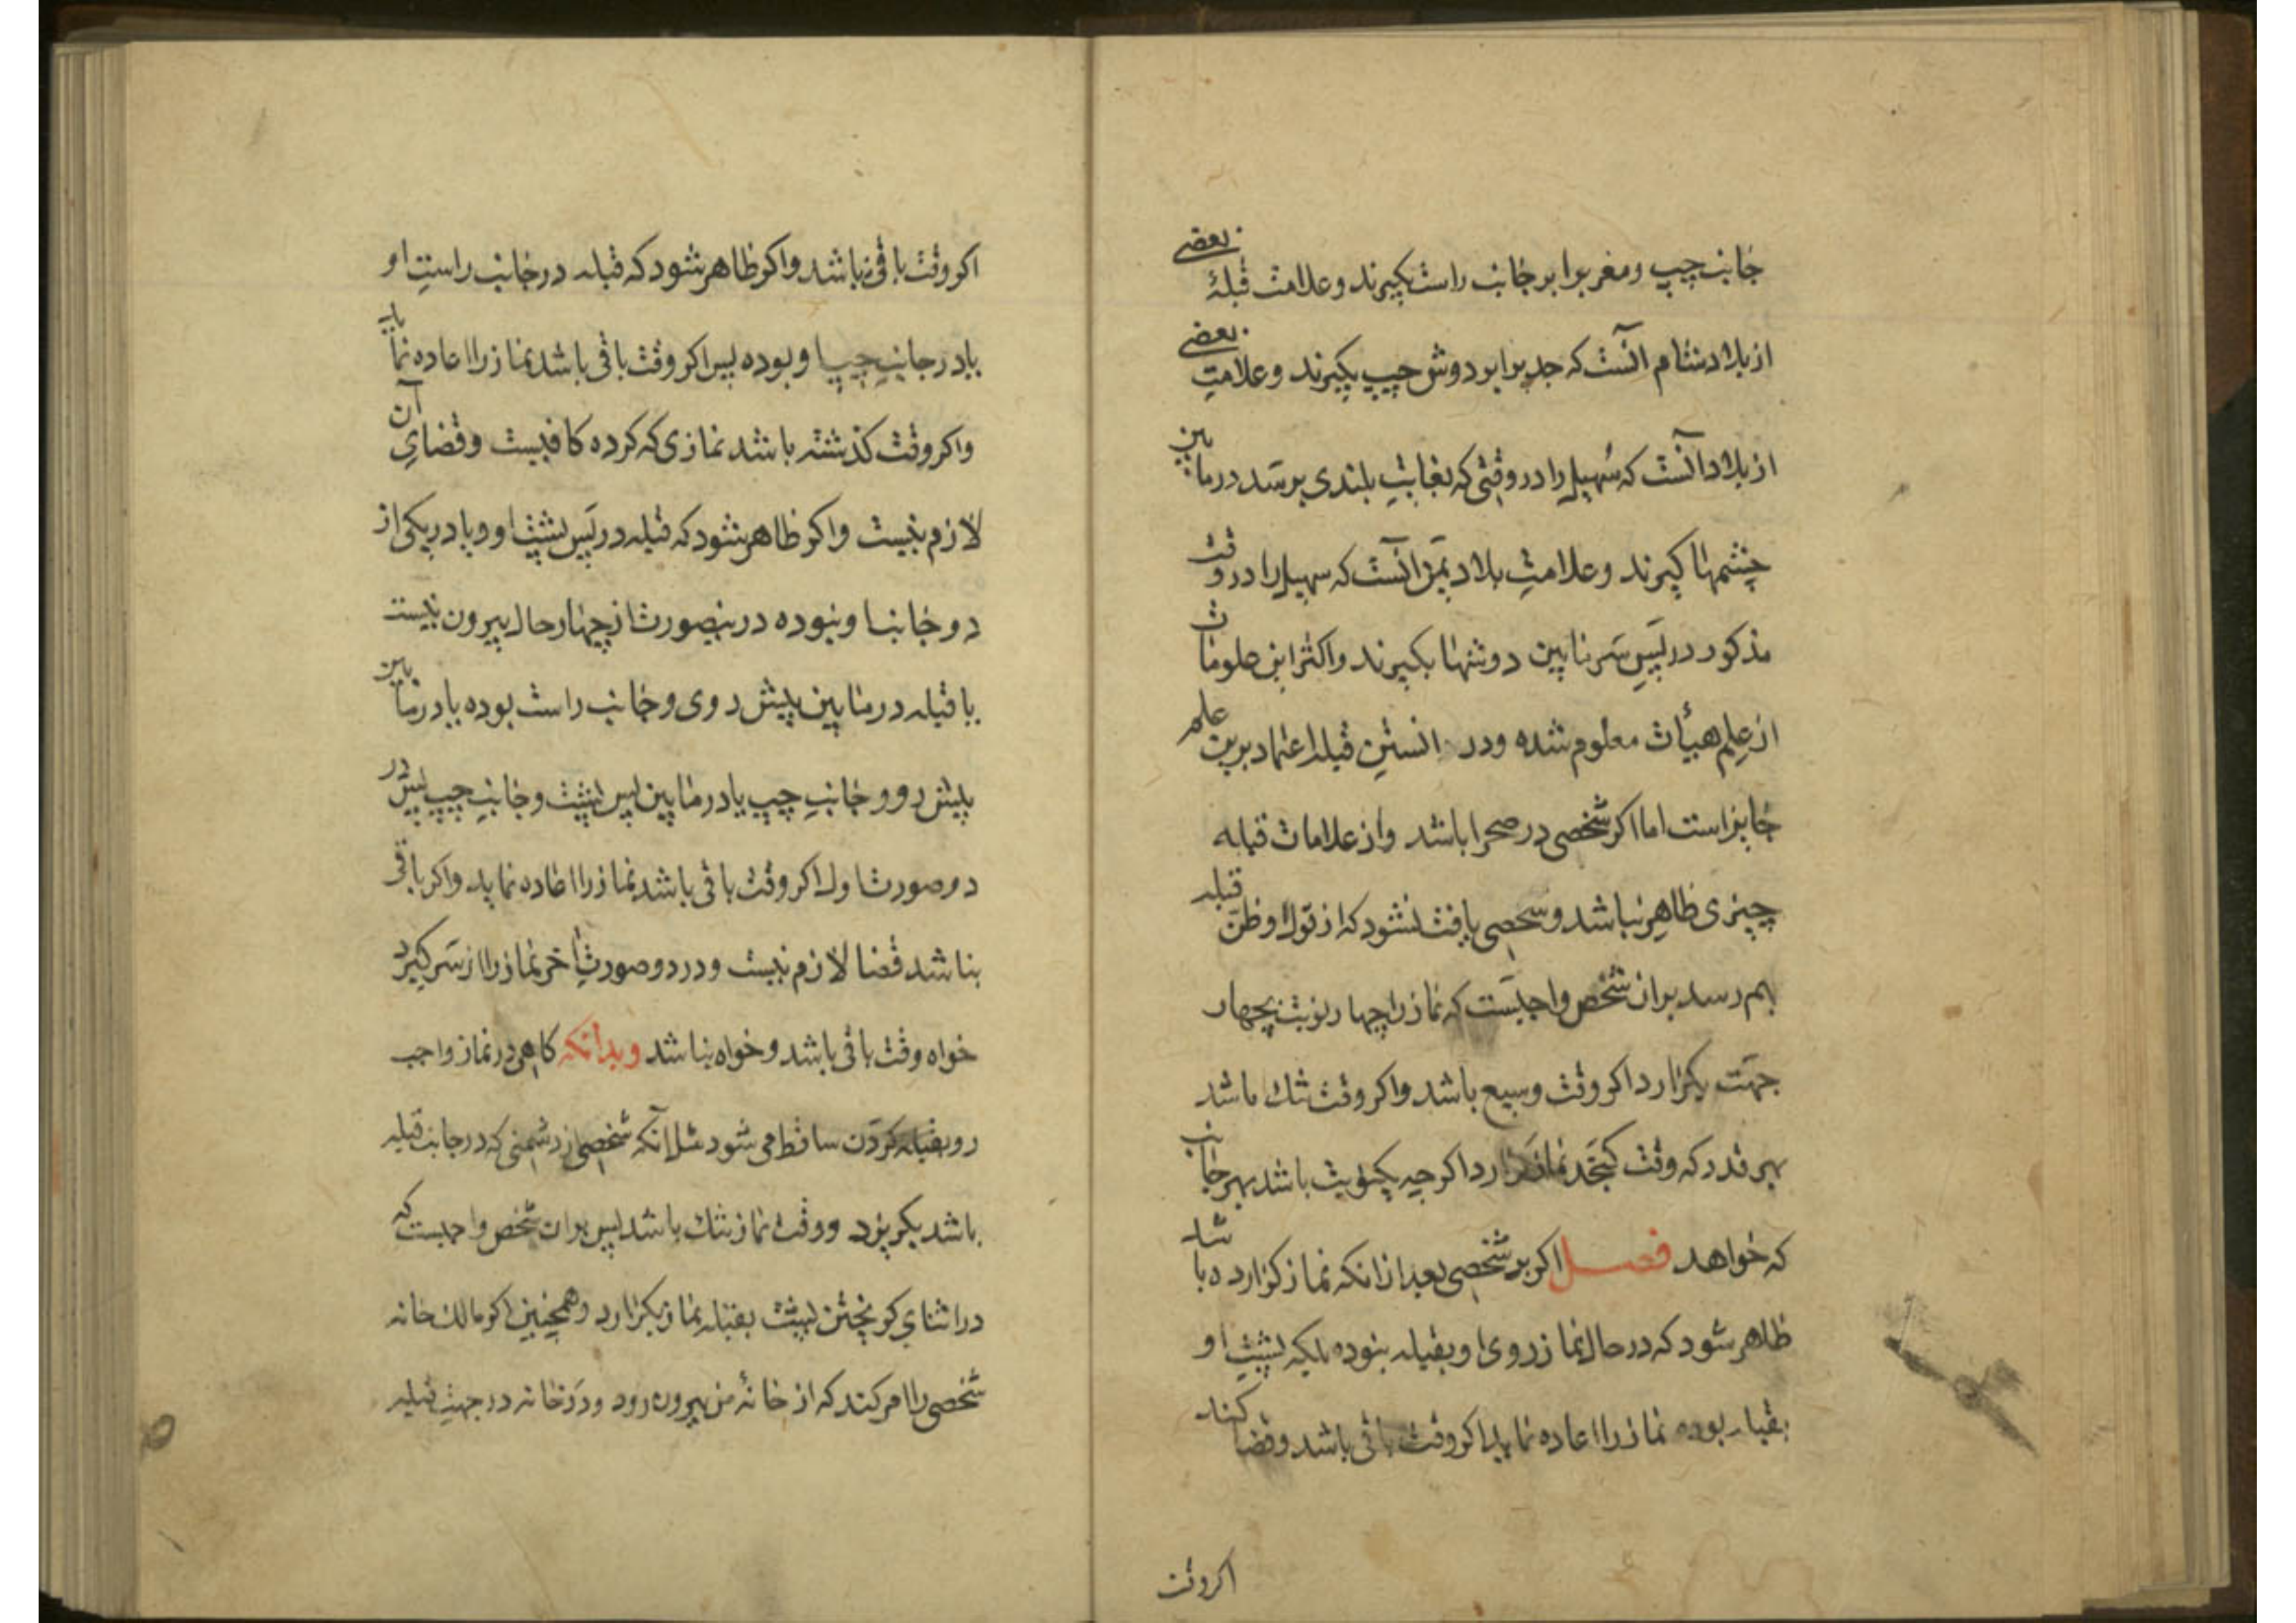 جانب چپ و مغرب را بر جانب راست بگیرند و علامت قبلهٔ بعضی
از بلاد شام آنست که جدی را بر دوش چپ بگیرند و علامتِ بعضی
از بلاد آنست که سُهیل را در وقتی که بغایتِ بلندی برسَد در مابین
چشمها گیرند و علامتِ بلاد یَمن آنست که سهیل را در وقت
مذکور در پَسِ سَر مابین دوشها بگیرند و اکثر این علومات
از علِم هیأت معلوم شده و در دانستنِ قبله اعتماد برین علم
جایز است اما اکر شخصی در صحرا باشد و از علامات قبله
چیزی ظاهر نباشد و شخصی یافت نشود که از قول او ظنّ قبله
بهم رسد بران شخص واجبَست که نماز را چهار نوبت بچهار
جهَت بکزارد اکر وقت وسیع باشد و اکر وقت تنك باشد
بهر قدر که وقت کنجَد نماز کزارد اکر چه یکنوبت باشد بهر جانب
که خواهد فصل اکر بر شخصی بعد از انکه نماز کزارده باشد
ظاهر شود که در حال نماز روی او بقبله نبوده بلکه پشتِ او
بقبله بوده نماز را اعاده نماید اکر وقت باقی باشد و قضا کند
اکر وقت
اکر وقت باقی نباشد و اکر ظاهر شود که قبله در جانب راستِ او
یا در جانبِ چپ او بوده پس اکر وقت باقی باشد نماز را اعاده نماید
و اکر وقت کذشته باشد نمازی که کرده کافیست و قضایِ آن
لازم نیست و اکر ظاهر شود که قبله در پَس پشت او و یا در یکی از
دو جانب او نبوده درینصورت از چهار حال بیرون نیست
یا قبله در مابین پیش روی و جانب راست بوده یا در مابین
پیش رو و جانبِ چپ یا در مابین پس پشت و جانبِ چپ پس در
دو صورت اول اکر وقت باقی باشد نماز را اعاده نماید و اکر باقی
نباشد قضا لازم نیست و در دو صورتِ آخر نماز را از سَر کیرد
خواه وقت باقی باشد و خواه نباشد و بدانکه کاهی در نماز واجب
رو بقبله کردَن ساقط می شود مثل آنکه شخصی از دشمنی که در جانب قبله
باشد بکریزد و وقت نماز تنك باشد پس بران شخص واجبست که
در اثنایِ کریختن پشت بقبله نماز بکزارد و همچنین اکر مالك خانه
شخصی را امر کند که از خانهٔ من بیرون رود و دَر خانه در جهتِ قبله